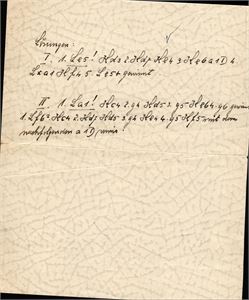 Lösungen:
I. 1. Le5! Kd3 2. Kd7 Ke4 3 Ke6 a1D 4
Lxa1 Kf4 5 Le5+ gewinnt
II. 1. La1! Kc4 2. g4 Kd5 3. g5 Ke6 4. g6 gewinnt
1. Lf6? Kc4 2. Kd7 Kd5 3. g4 Ke4 4. g5 Kf5 mit dem
nachfolgenden a1D remis!